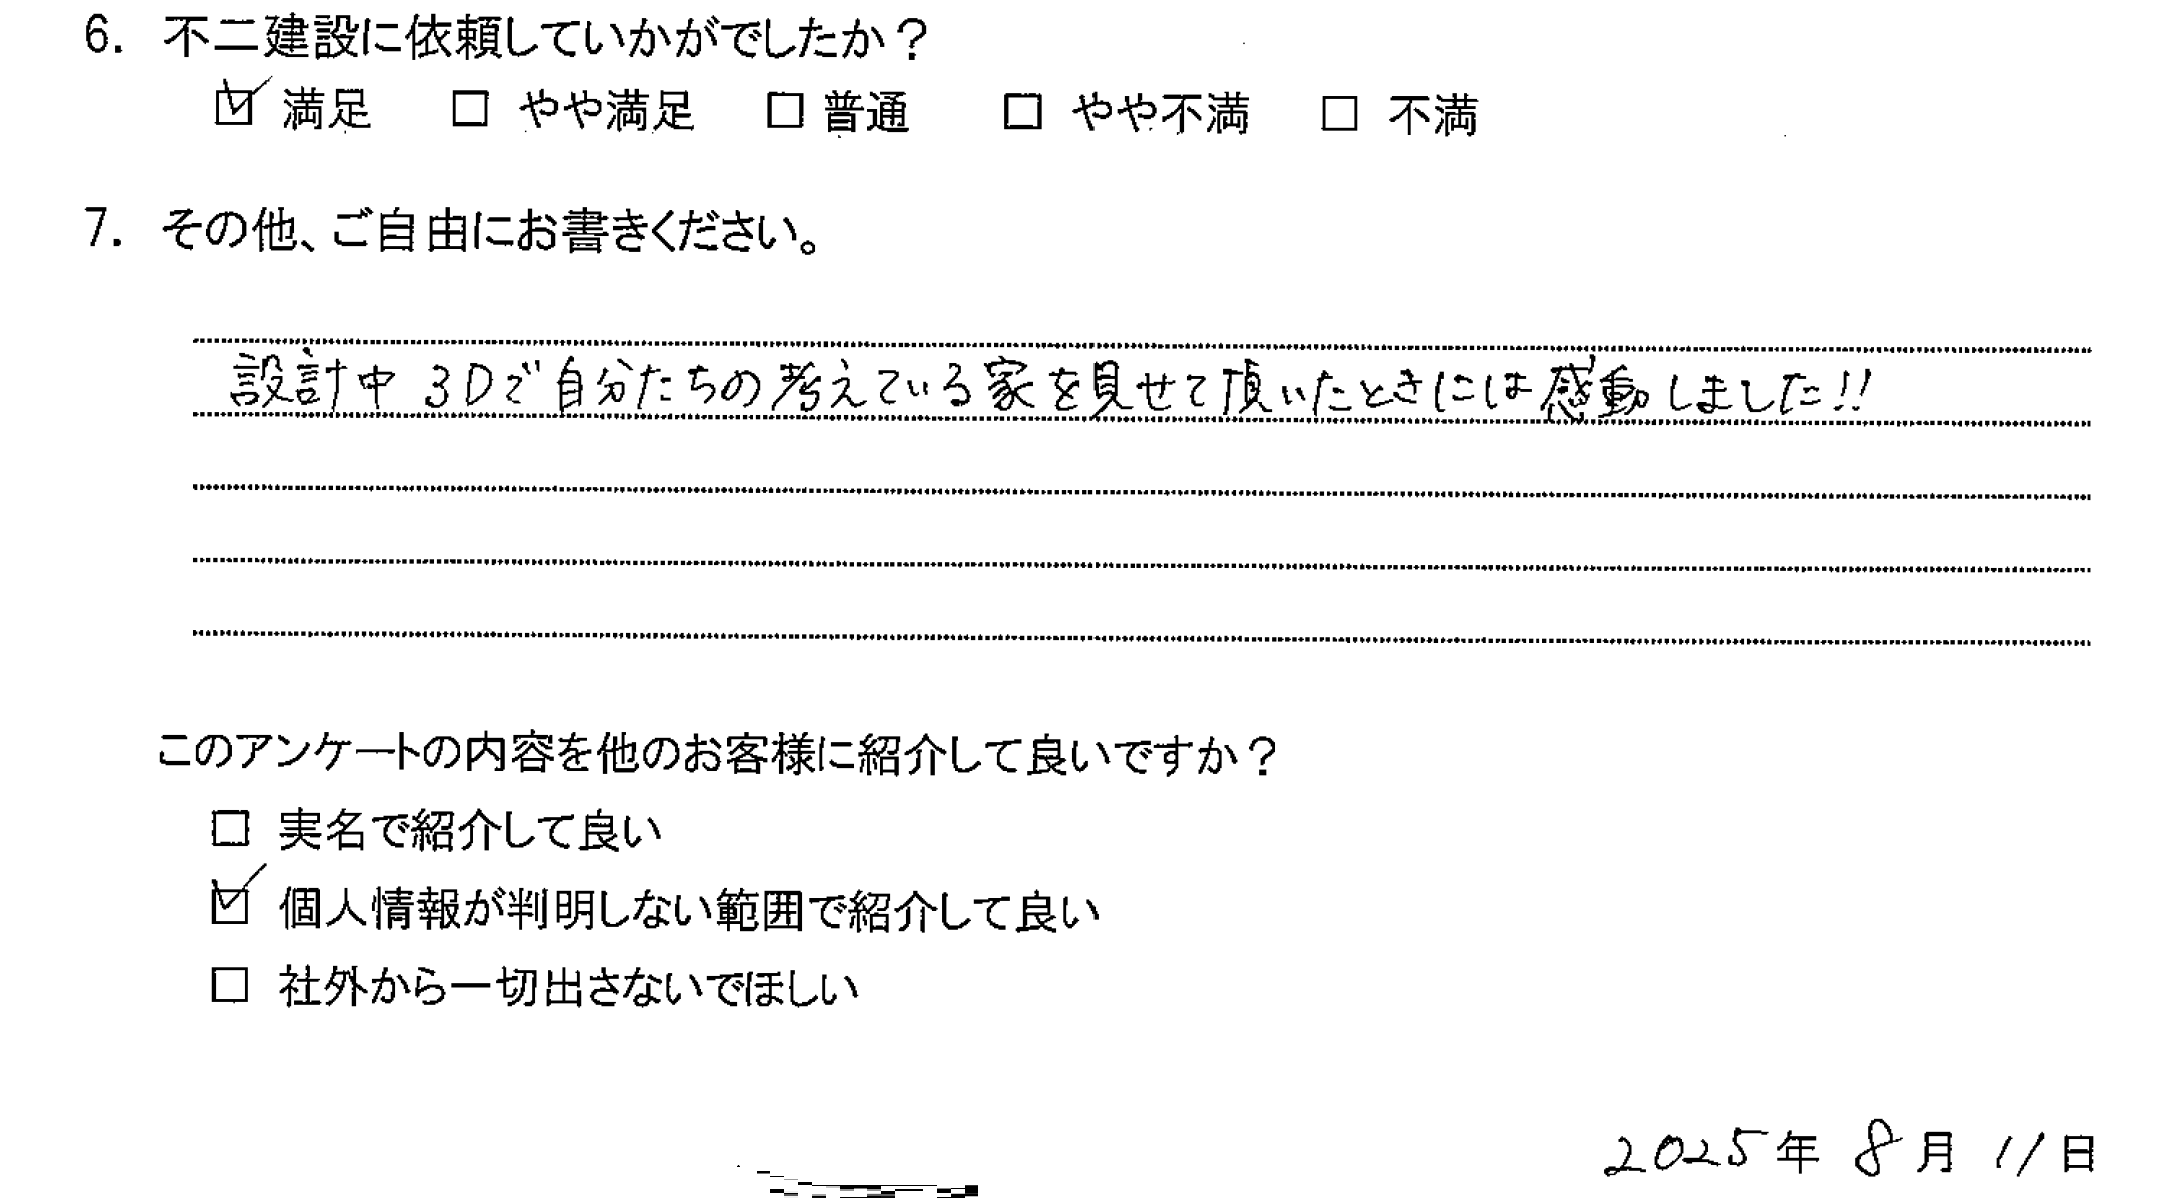 6. 不二建設に依頼していかがでしたか？
☑ 満足 □ やや満足 □ 普通 □ やや不満 □ 不満
7. その他、ご自由にお書きください。
設計中 3Dで自分たちの考えている家を見せて頂いたときには感動しました!!
このアンケートの内容を他のお客様に紹介して良いですか？
□ 実名で紹介して良い
☑ 個人情報が判明しない範囲で紹介して良い
□ 社外から一切出さないでほしい
2025年 8月 11日